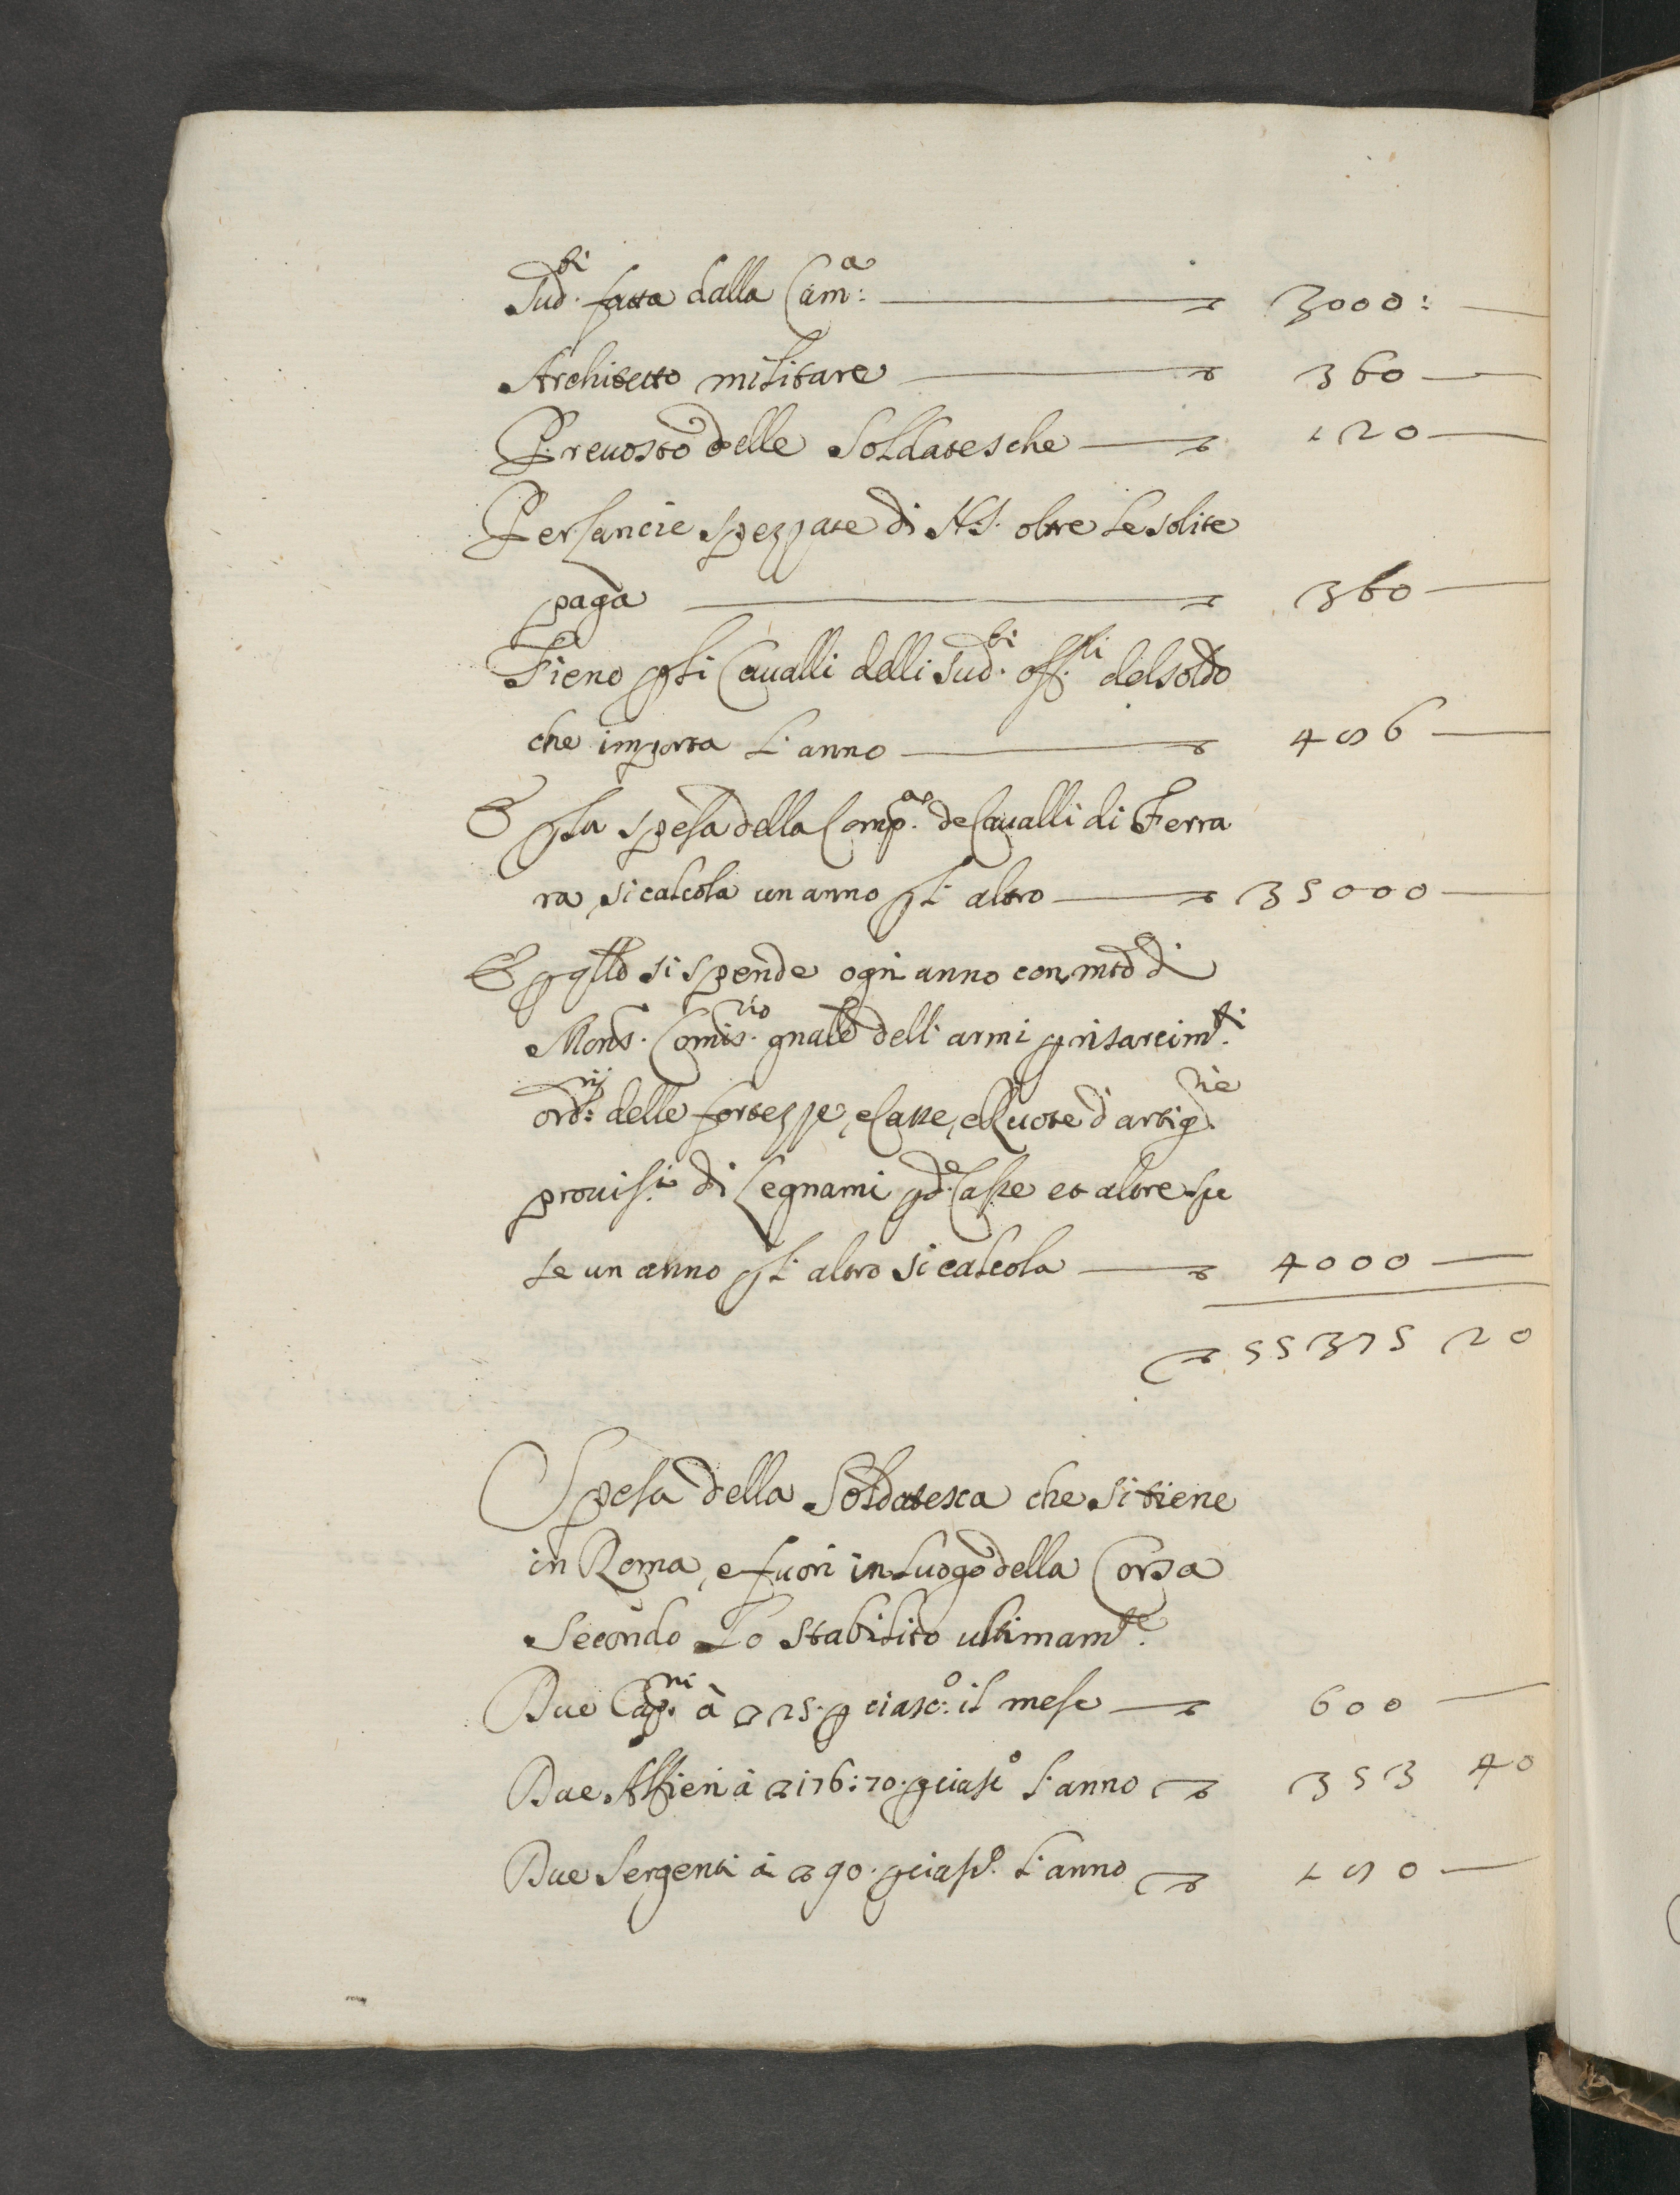 Sud.ti fatta dalla Cam:a — ▽ 3000: —
Architetto militare — ▽ 360 —
Preuosto delle Soldatesche — ▽ 120 —
Per lancie spezzate di N.S. oltre le solite
paga — ▽ 360 —
Fieno p li Caualli delli sud.ti off.li del soldo
che importa l'anno — ▽ 486 —
E p la spesa della Comp.ae de Caualli di Ferra
ra si calcola un anno p l'altro — ▽ 35000 —
E p qllo si spende ogn anno con mtd di
Mons. Comis.rio gnale dell'armi p risarcim.ti
ord:rij delle fortezze, e Casse, e Ruote d'artig.rie
prouis.i di Legnami p d.e Casse et altre spe
se un anno p l'altro si calcola — ▽ 4000 —
▽ 55375 20
Spesa della Soldatesca che si tiene
in Roma, e fuori in luogo della Corsa
secondo lo stabilito ultimam.te
Due Cap.ni à ▽ 25. p ciasc:o il mese — ▽ 600 —
Due Alfieri à ▽ 176:70. p ciasc.o l'anno ▽ 353 40
Due Sergenti à ▽ 90. p ciasc.o l'anno ▽ 180 —